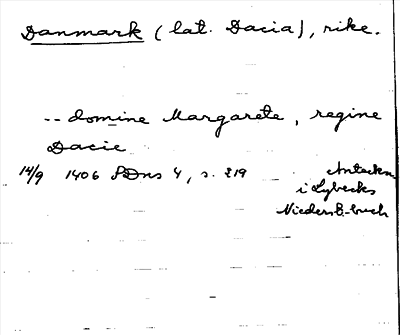 Danmark (lat. Dacia), rike.
-- domine Margarete, regine
Dacie
14/9 1406 SDns 4, s. 219 Anteckn.
i Lybecks
Niederst.-buch